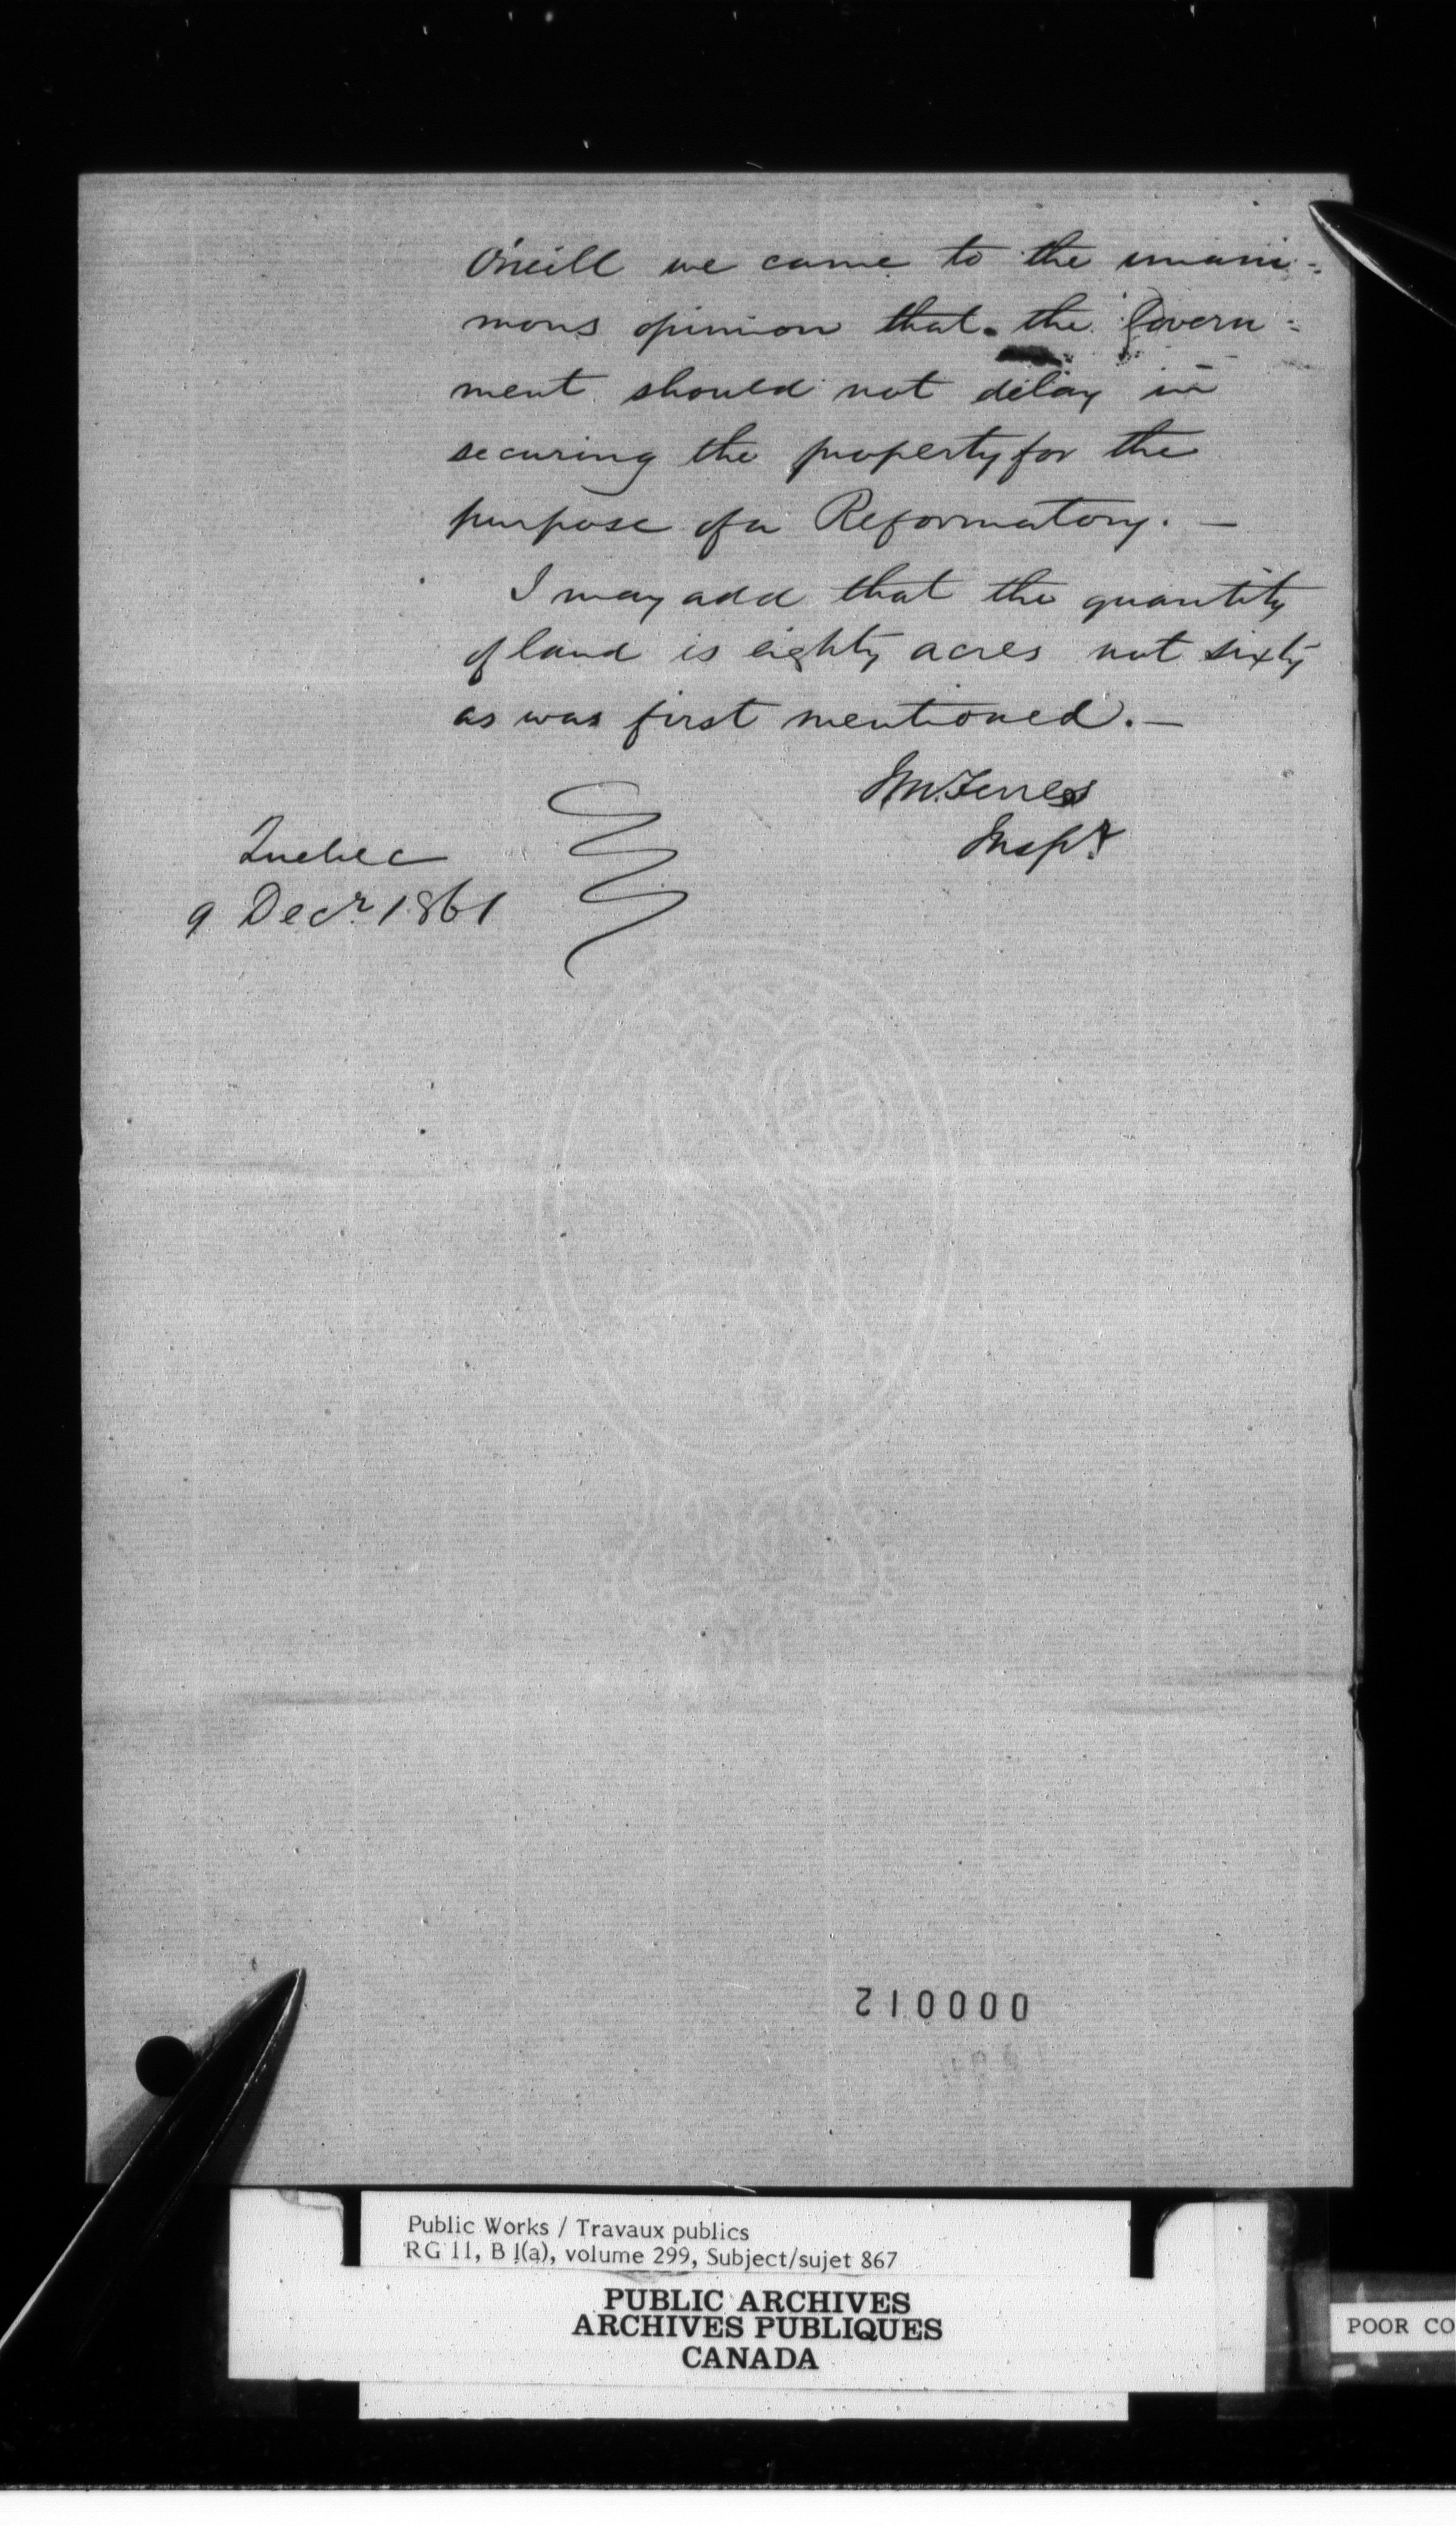 O'neill we came to the unani=
mous opinion that the Govern=
ment should not delay in
securing the property for the
purpose of a Reformatory. —
I may add that the quantity
of land is eighty acres not sixty
as was first mentioned. —
Inspr
Quebec
9 Decr 1861
000012
Public Works / Travaux publics
RG 11, B 1(a), volume 299, Subject/sujet 867
PUBLIC ARCHIVES
ARCHIVES PUBLIQUES
CANADA
POOR CO